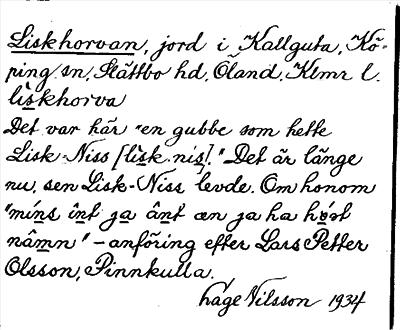 Liskhorvan, jord i Kallguta, Kö-
ping sn, Slättbo hd, Öland, Klmr l.
lìskhorva
Det var här "en gubbe som hette
Lisk-Niss [lìsk nis]." Det är länge
nu, sen Lisk-Niss levde. Om honom
"mins int ja ânt æn ja ha hört
nâmn" – anföring efter Lars Petter
Olsson, Pinnkulla.
Håge Nilsson 1934